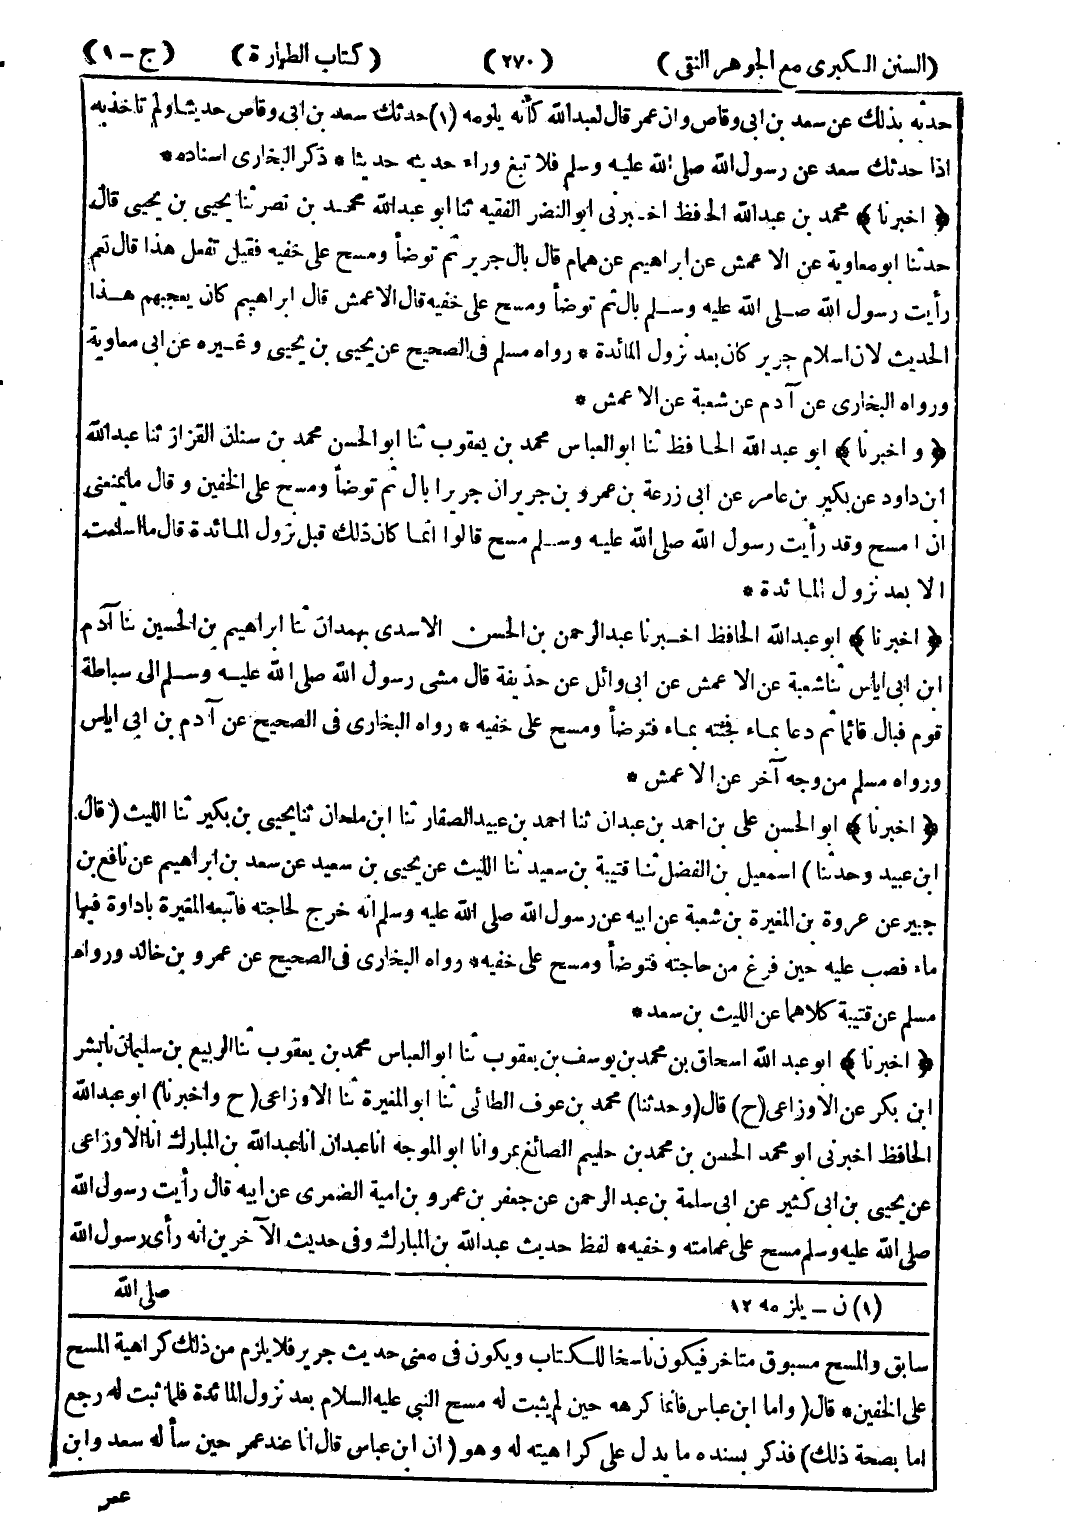 (السنن الكبرى مع الجوهر النقى) (٢٧٠) (كتاب الطهارة) (ج - ١)
حدثه بذلك عن سعد بن ابى وقاص وان عمر قال لعبدالله كأنه يلومه (١) حدثك سعد بن ابى وقاص حديثا ولم تاخذ به
اذا حدثك سعد عن رسول الله صلى الله عليه وسلم فلا تبغ وراء حديثه حديثا * ذكر البخارى اسناده *
﴿ اخبرنا ﴾ محمد بن عبدالله الحافظ اخبرنى ابو النضر الفقيه ثنا ابو عبدالله محمد بن نصر ثنا يحيى بن يحيى قال
حدثنا ابو معاوية عن الاعمش عن ابراهيم عن همام قال بال جرير ثم توضأ ومسح على خفيه فقيل تفعل هذا قال نعم
رأيت رسول الله صلى الله عليه وسلم بال ثم توضأ ومسح على خفيه قال الاعمش قال ابراهيم كان يعجبهم هذا
الحديث لان اسلام جرير كان بعد نزول المائدة * رواه مسلم فى الصحيح عن يحيى بن يحيى وغيره عن ابى معاوية
ورواه البخارى عن آدم عن شعبة عن الاعمش *
﴿ و اخبرنا ﴾ ابو عبدالله الحافظ ثنا ابو العباس محمد بن يعقوب ثنا ابو الحسن محمد بن سنان القزاز ثنا عبدالله
ابن داود عن بكير بن عامر عن ابى زرعة بن عمرو بن جرير ان جريرا بال ثم توضأ ومسح على الخفين و قال ما يمنعنى
ان امسح وقد رأيت رسول الله صلى الله عليه وسلم مسح قالوا انما كان ذلك قبل نزول المائدة قال ما اسلمت
الا بعد نزول المائدة *
﴿ اخبرنا ﴾ ابو عبدالله الحافظ اخبرنا عبدالرحمن بن الحسن الاسدى بهمدان ثنا ابراهيم بن الحسين ثنا آدم
ابن ابى اياس ثنا شعبة عن الاعمش عن ابى وائل عن حذيفة قال مشى رسول الله صلى الله عليه وسلم الى سباطة
قوم فبال قائما ثم دعا بماء فجئته بماء فتوضأ ومسح على خفيه * رواه البخارى فى الصحيح عن آدم بن ابى اياس
ورواه مسلم من وجه آخر عن الاعمش *
﴿ اخبرنا ﴾ ابو الحسن على بن احمد بن عبدان ثنا احمد بن عبيد الصفار ثنا ابن ملحان ثنا يحيى بن بكير ثنا الليث ( قال
ابن عبيد وحدثنا ) اسمعيل بن الفضل ثنا قتيبة بن سعيد ثنا الليث عن يحيى بن سعيد عن سعد بن ابراهيم عن نافع بن
جبير عن عروة بن المغيرة بن شعبة عن ابيه عن رسول الله صلى الله عليه وسلم انه خرج لحاجته فاتبعه المغيرة باداوة فيها
ماء فصب عليه حين فرغ من حاجته فتوضأ ومسح على خفيه * رواه البخارى فى الصحيح عن عمرو بن خالد ورواه
مسلم عن قتيبة كلاهما عن الليث بن سعد *
﴿ اخبرنا ﴾ ابو عبد الله اسحاق بن محمد بن يوسف بن يعقوب ثنا ابو العباس محمد بن يعقوب ثنا الربيع بن سليمان ثنا بشر
ابن بكر عن الاوزاعى (ح) قال (وحدثنا) محمد بن عوف الطائى ثنا ابو المغيرة ثنا الاوزاعى (ح واخبرنا) ابو عبدالله
الحافظ اخبرنى ابو محمد الحسن بن محمد بن حليم الصائغ بمرو انا ابو الموجه انا عبدان انا عبدالله بن المبارك انا الاوزاعى
عن يحيى بن ابى كثير عن ابى سلمة بن عبد الرحمن عن جعفر بن عمرو بن امية الضمرى عن ابيه قال رأيت رسول الله
صلى الله عليه وسلم مسح على عمامته وخفيه * لفظ حديث عبدالله بن المبارك وفى حديث الآخر بن انه رأى رسول الله
صلى الله
(١) ن - يلزمه ١٢
سابق والمسح مسبوق متاخر فيكون ناسخا للكتاب ويكون فى معنى حديث جرير فلا يلزم من ذلك كراهية المسح
على الخفين * قال ( واما ابن عباس فانما كرهه حين لم يثبت له مسح النبى عليه السلام بعد نزول المائدة فلما ثبت له رجع
اما بصحة ذلك ) فذكر بسنده ما يدل على كراهيته له وهو ( ان ابن عباس قال انا عند عمر حين سأله سعد وابن
عمر